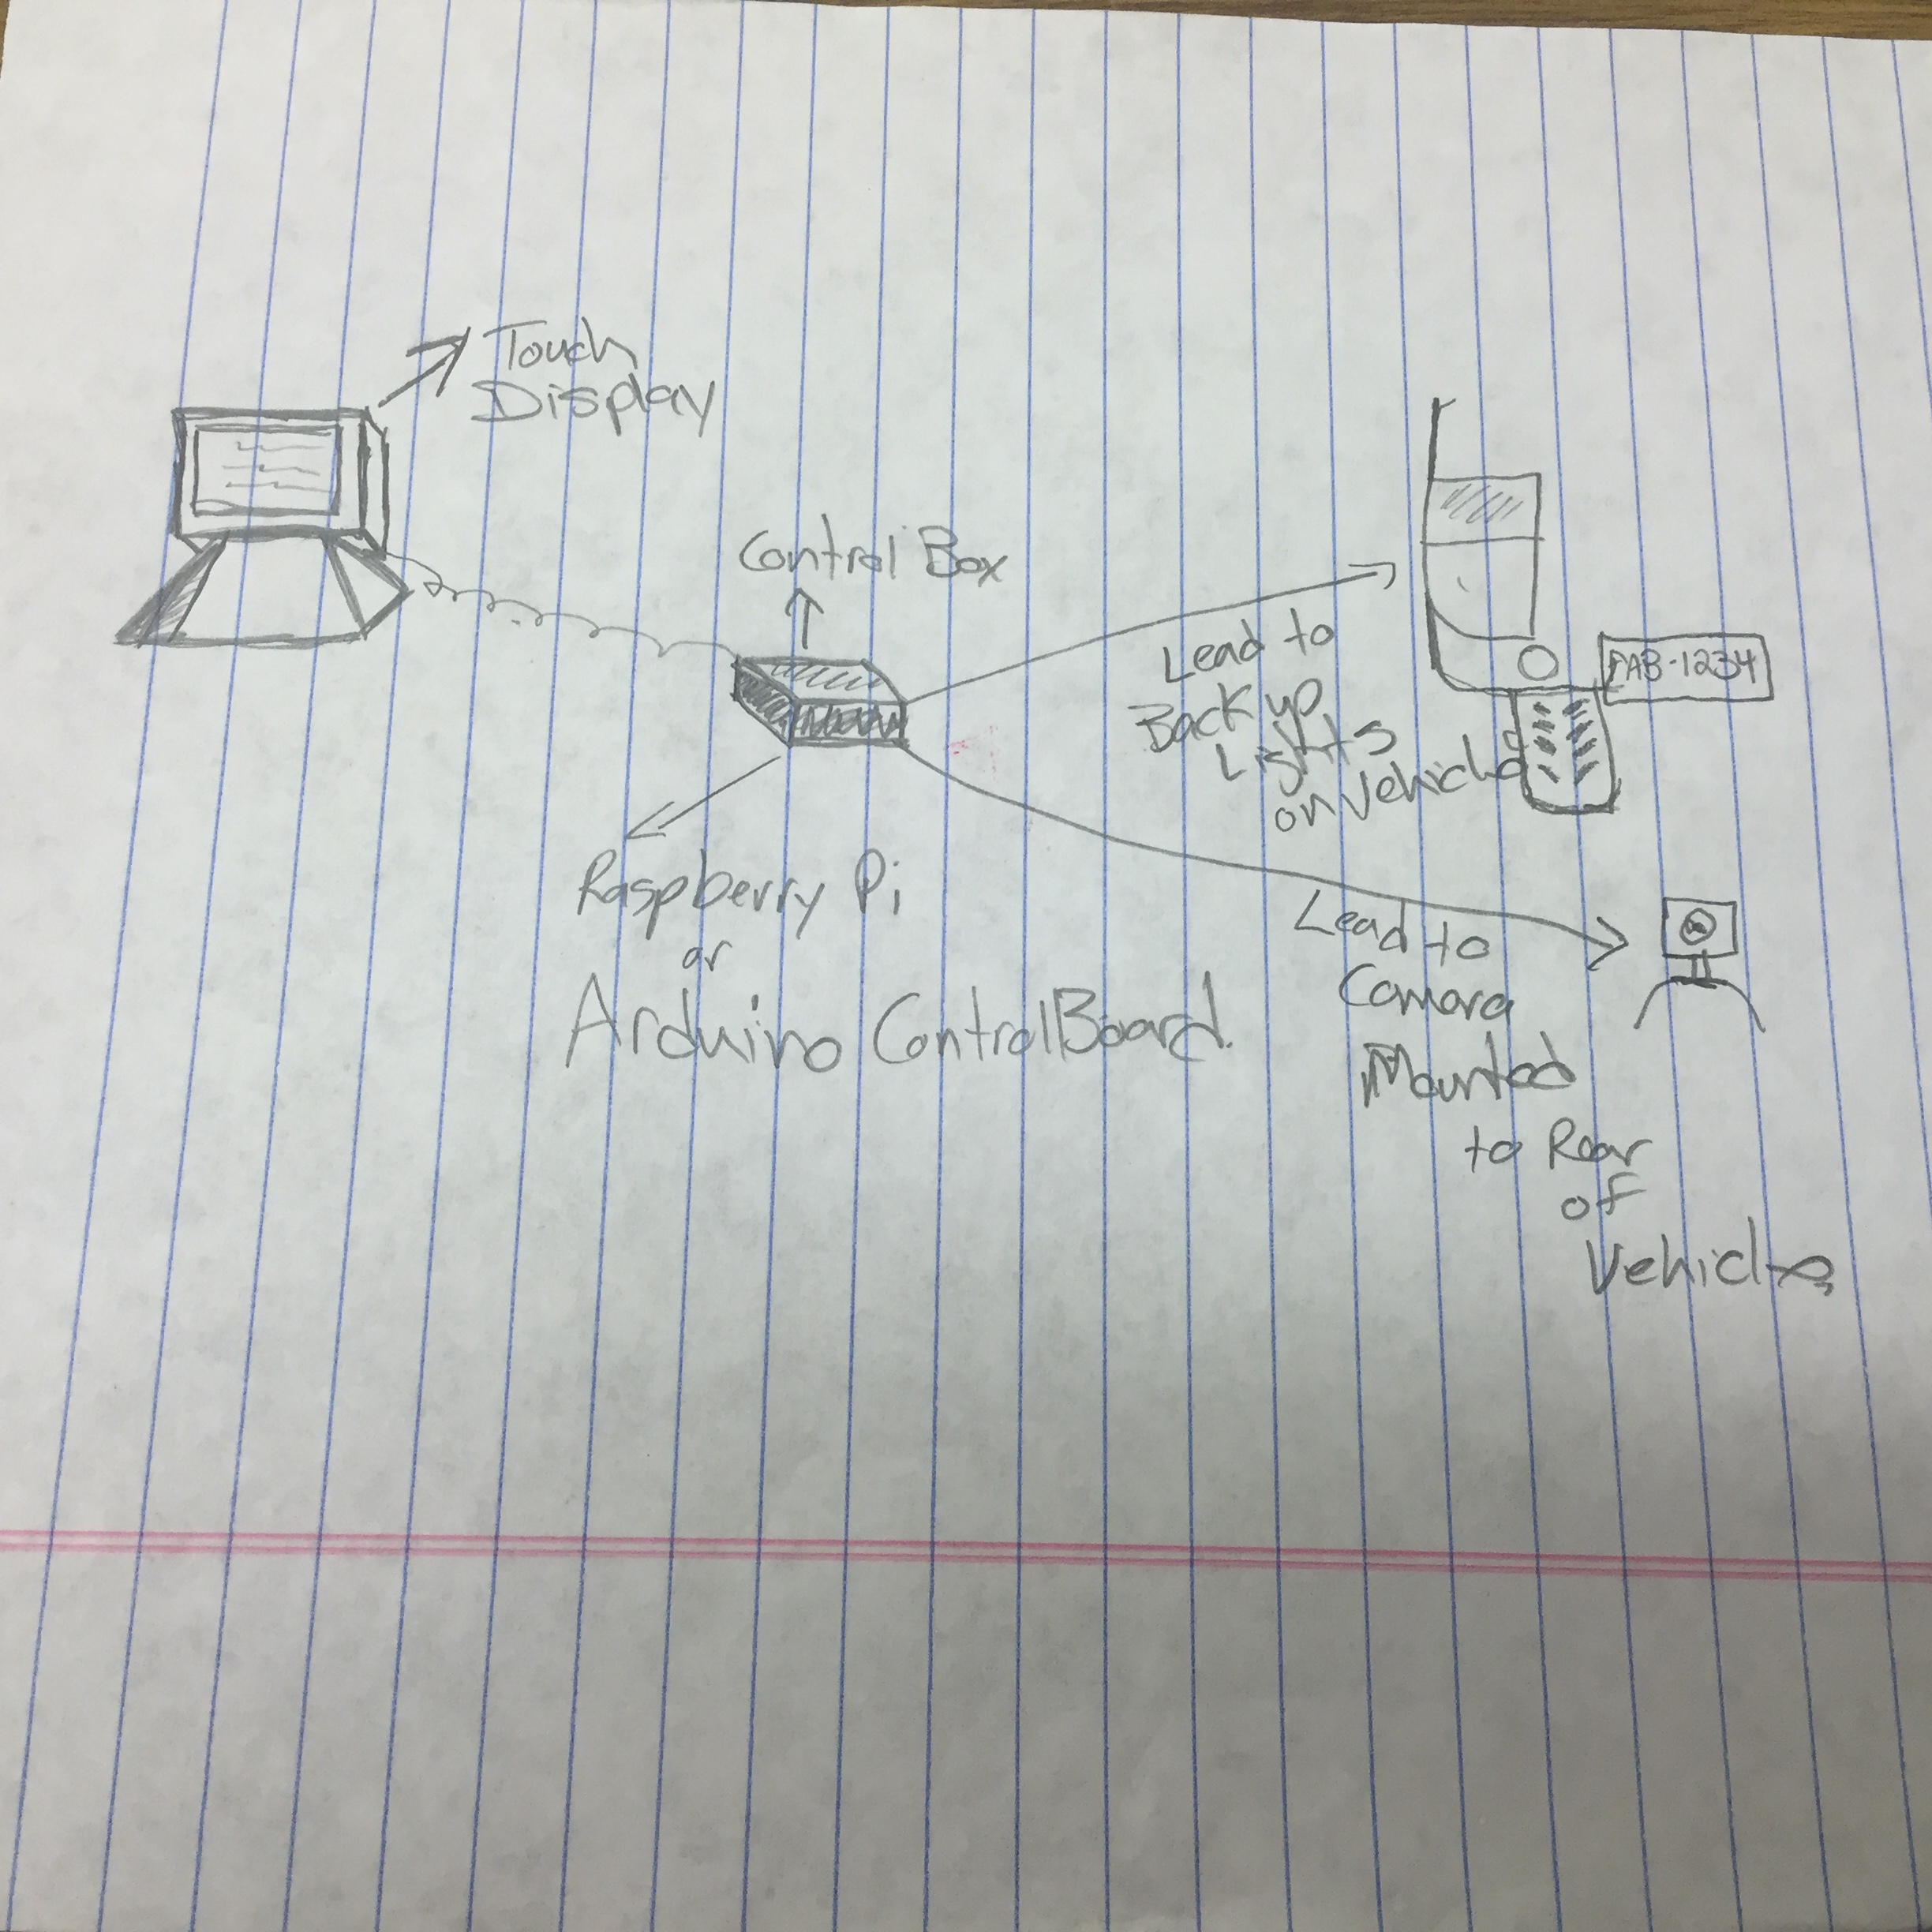 Touch
Display
Control Box
Raspberry Pi
or
Arduino Control Board.
Lead to
Back up
Lights
on Vehicle
AAB-1234
Lead to
Camera
Mounted
to Rear
of
Vehicle